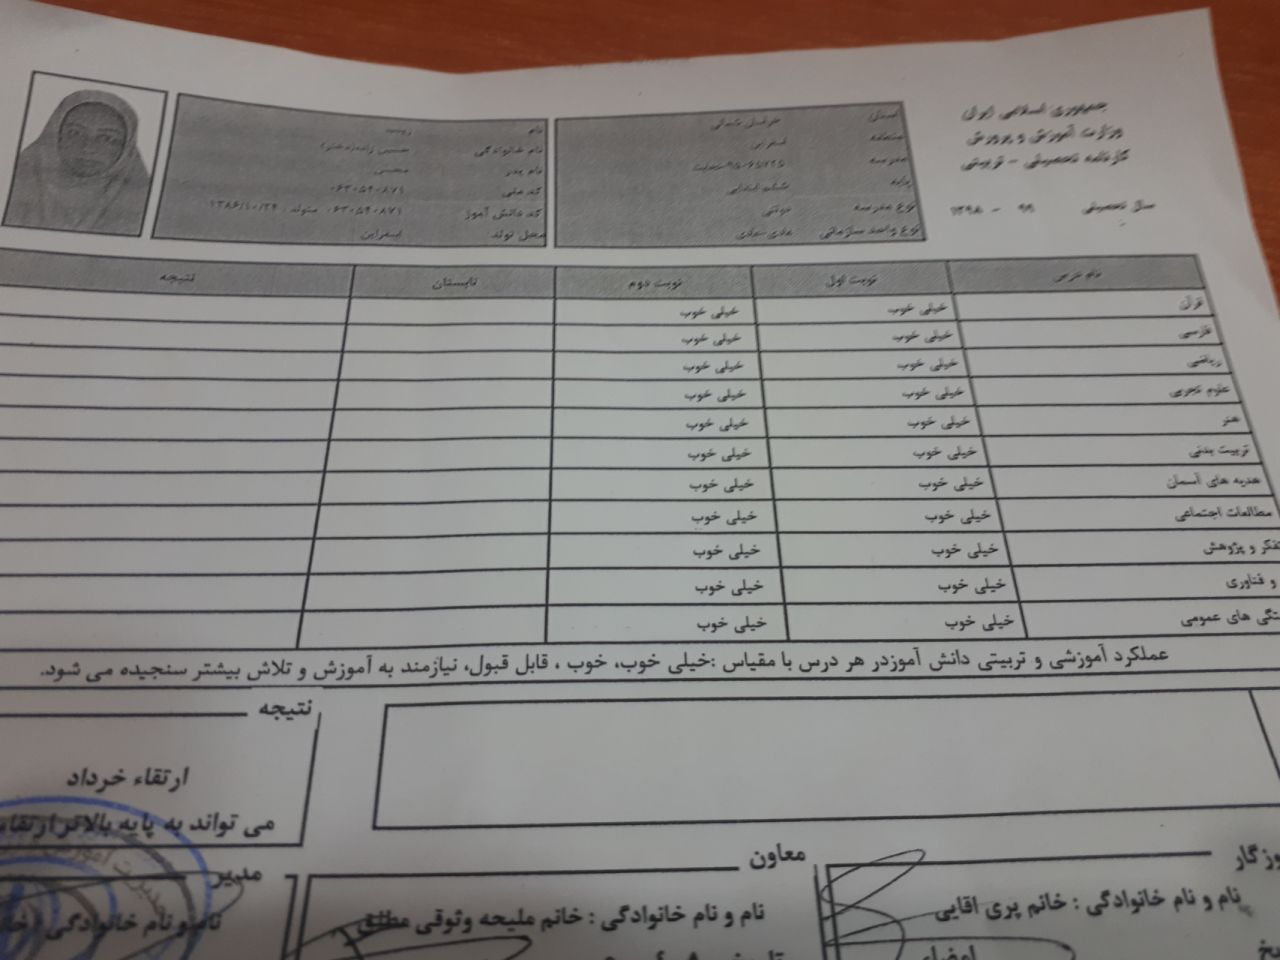 جمهوری اسلامی ایران
وزارت آموزش و پرورش
کارنامه تحصیلی - تربیتی
سال تحصیلی ۹۹ - ۱۳۹۸
استان خراسان شمالی
منطقه اسفراین
مدرسه
پایه ششم ابتدایی
نوع مدرسه دولتی
نوع واحد سازمانی عادی-عادی
نام
نام خانوادگی
نام پدر
کد ملی ۰۶۳۰۵۴۰۸۷۱
کد دانش آموز ۰۶۳۰۵۴۰۸۷۱ متولد : ۱۳۸۶/۱۰/۲۴
محل تولد اسفراین
نام درس نوبت اول نوبت دوم تابستان نتیجه
قرآن خیلی خوب خیلی خوب
فارسی خیلی خوب خیلی خوب
ریاضی خیلی خوب خیلی خوب
علوم تجربی خیلی خوب خیلی خوب
هنر خیلی خوب خیلی خوب
تربیت بدنی خیلی خوب خیلی خوب
هدیه های آسمان خیلی خوب خیلی خوب
مطالعات اجتماعی خیلی خوب خیلی خوب
تفکر و پژوهش خیلی خوب خیلی خوب
و فناوری خیلی خوب خیلی خوب
های عمومی خیلی خوب خیلی خوب
عملکرد آموزشی و تربیتی دانش آموزدر هر درس با مقیاس :خیلی خوب، خوب ، قابل قبول، نیازمند به آموزش و تلاش بیشتر سنجیده می شود.
نتیجه
ارتقاء خرداد
می تواند به پایه بالاتر ارتقاء
نام و نام خانوادگی : خانم پری اقایی
امضاء
معاون
نام و نام خانوادگی : خانم ملیحه وثوقی مطلق
مدیر
نام و نام خانوادگی :